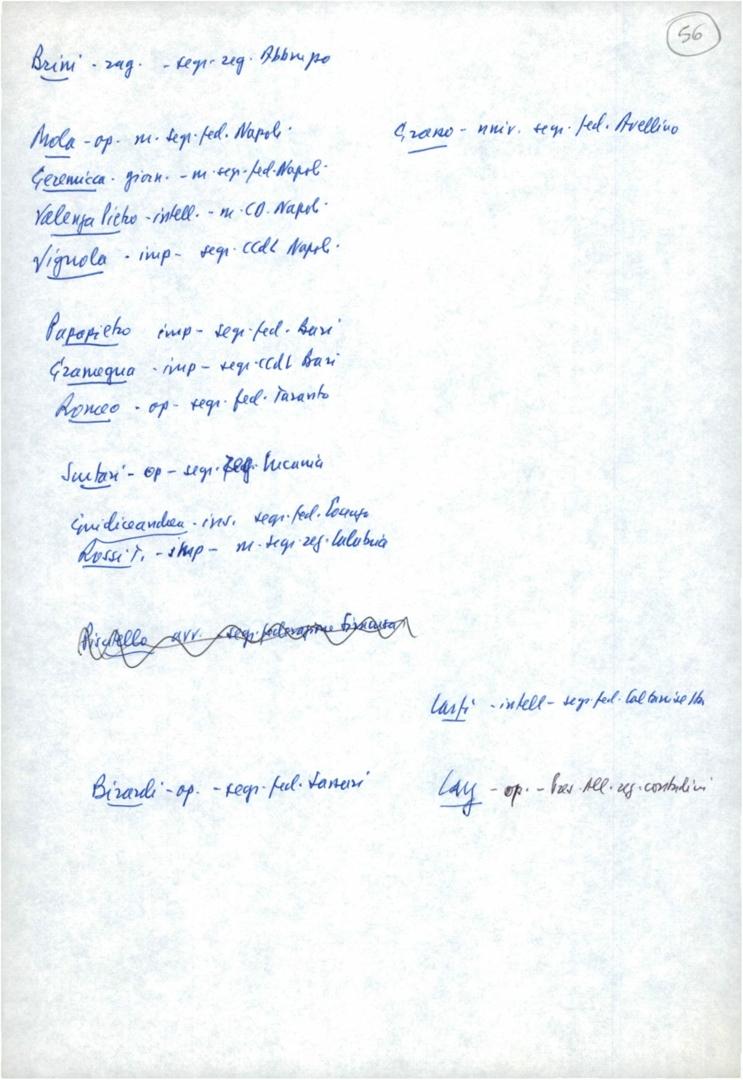 56
Brini - rag. - segr. reg. Abbruzzo
Mola - op. m. segr. fed. Napoli.
Grano - univ. segr. fed. Avellino
Geremicca - giorn. - m. segr. fed. Napoli.
Valenza Pietro - intell. - m. CD. Napoli.
Vignola - imp - segr. CCdL Napoli.
Papapietro imp - segr. fed. Bari
Gramegna - imp - segr. CCdL Bari
Romeo - op - segr. fed. Taranto
- op - segr. reg. Lucania
Giudiceandrea - ins. segr. fed. Cosenza
Rossi T. - imp - m. segr. reg. Calabria
avv. segr. federazione
- intell - segr. fed. Caltanisetta
Birardi - op. - segr. fed. Sassari
Lay - op. - Pres. All. reg. contadini